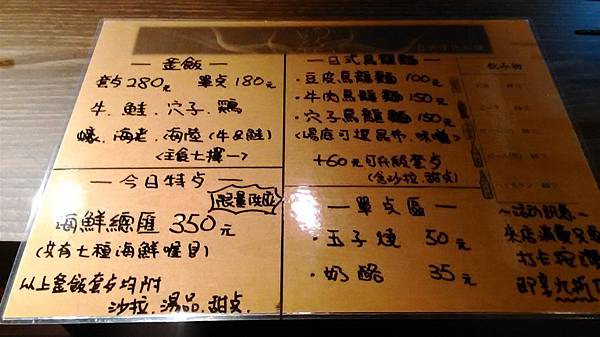 — 釜飯 —
套点280元 單点180元
牛.鮭.穴子.鶏
蠔.海老.海陸(牛&鮭)
<主食七擇一>
— 今日特点 —
限量供应
海鮮總匯 350元
(共有七種海鮮喔!)
以上釜飯套点均附
沙拉.湯品.甜点.
— 日式烏龍麵 —
·豆皮烏龍麵 100元
·牛肉烏龍麵 150元
·穴子烏龍麵 150元
<湯底可撰昆布.味噌>
+60元可升級套点
(含沙拉.甜点)
— 單点區 —
·玉子燒 50元
·奶酪 35元
飲み物
~活動訊息~
來店消費只要
打卡按讚
即享九折